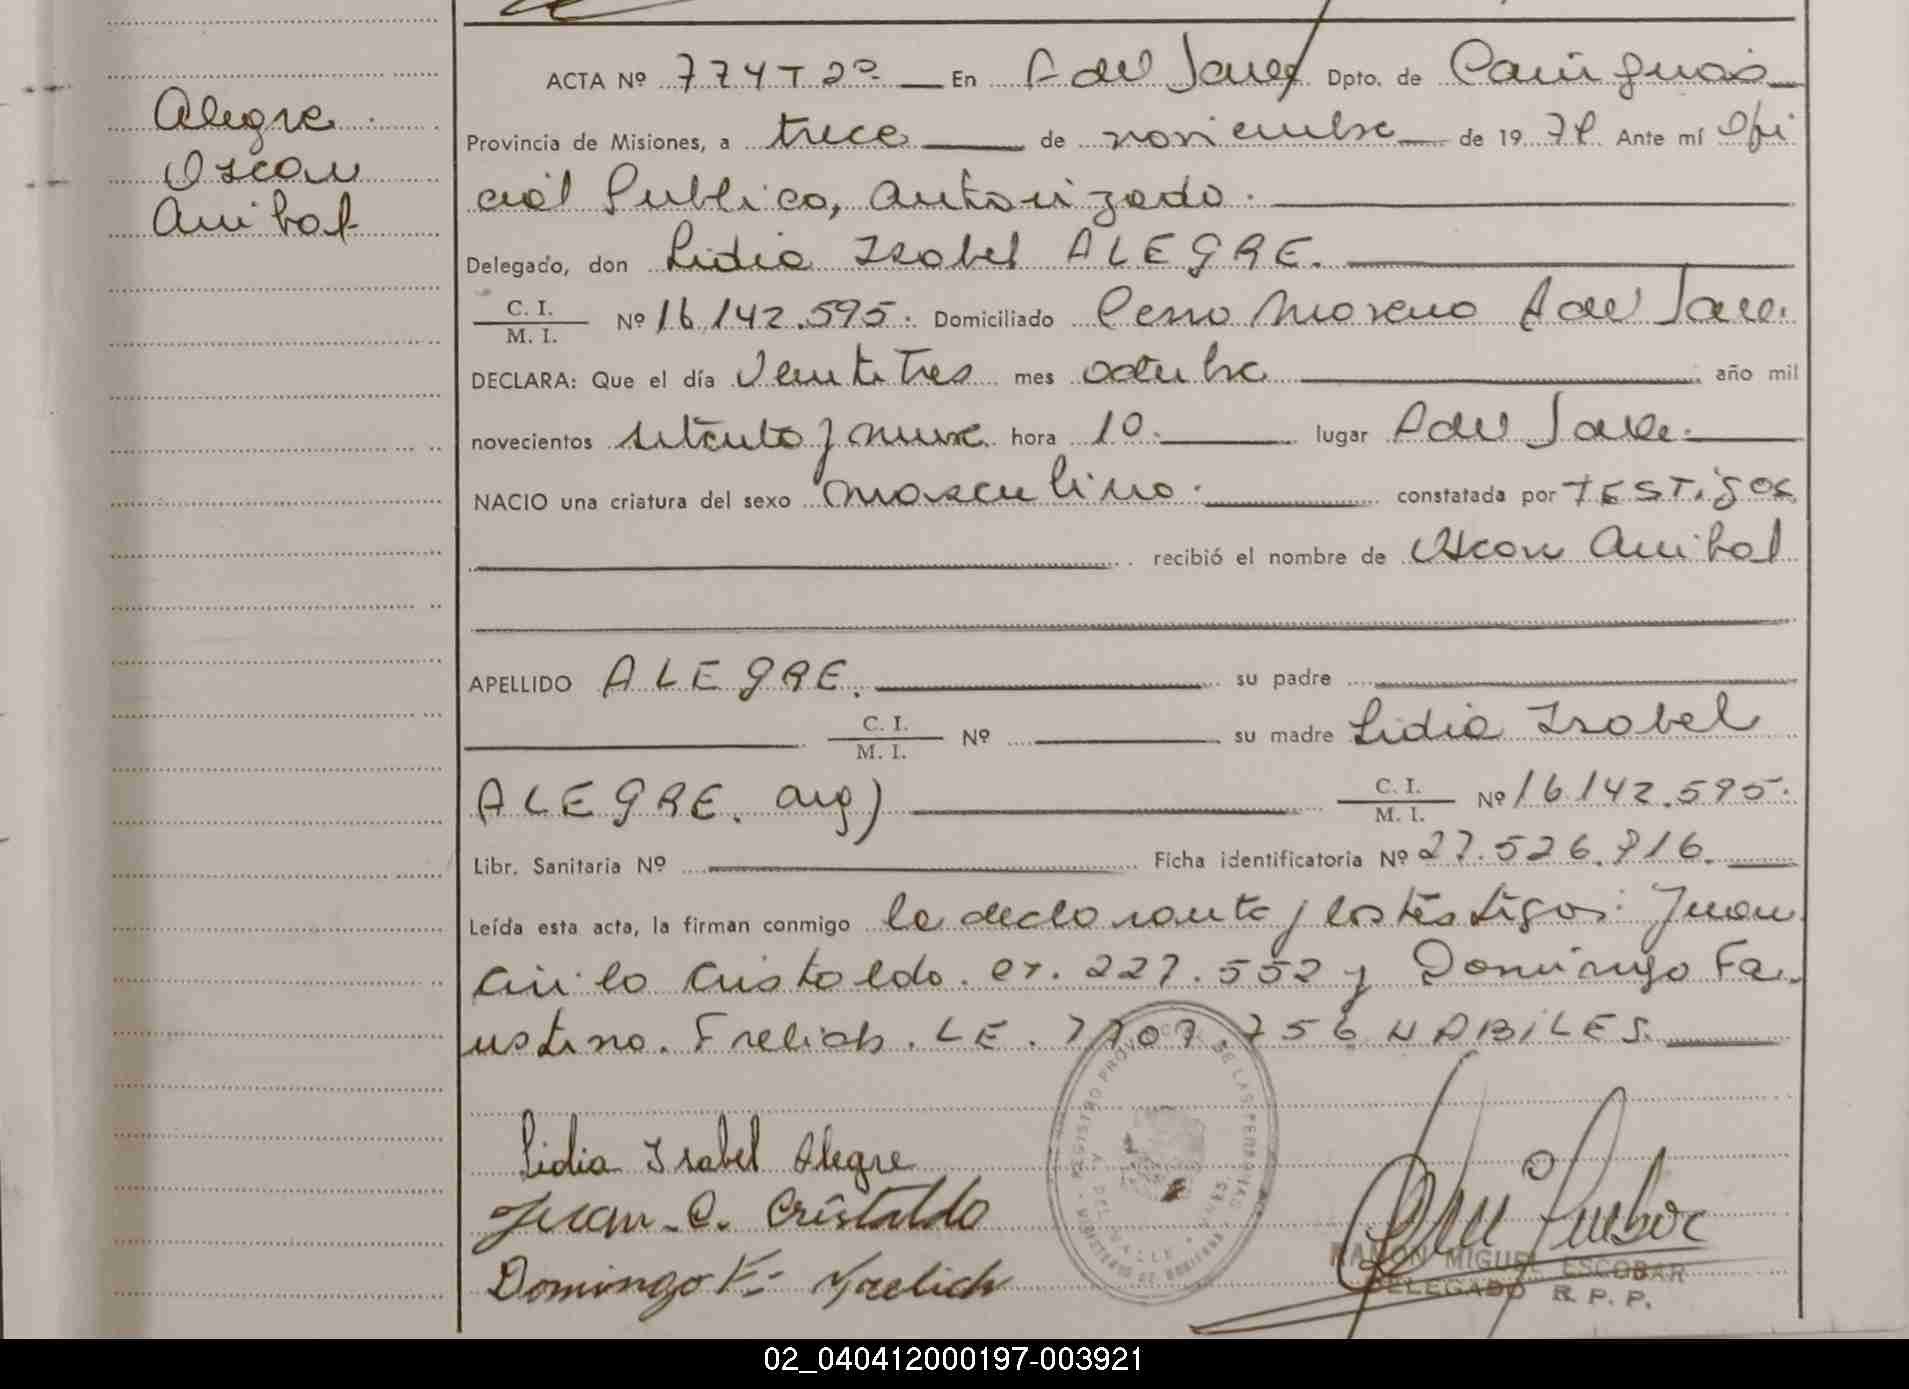 Alegre
Oscar
Anibal
ACTA Nº 774 T 2º En A del Valle Dpto. de Cainguas
Provincia de Misiones, a trece de noviembre de 1979. Ante mí Ofi
cial Publico, autorizado.
Delegado, don Lidia Isabel ALEGRE.
C. I.
M. I. Nº 16.142.595. Domiciliado Cerro Moreno A del Valle.
DECLARA: Que el día Veintitres mes octubre año mil
novecientos setenta y nueve hora 10. lugar A del Valle.
NACIO una criatura del sexo masculino. constatada por TESTigos
recibió el nombre de Oscar Anibal
APELLIDO ALEGRE. su padre
C. I.
M. I. Nº su madre Lidia Isabel
ALEGRE. arg) C. I.
M. I. Nº 16.142.595.
Libr. Sanitaria Nº Ficha identificatoria Nº 27.526.916.
Leída esta acta, la firman conmigo la declarante y los testigos: Juan
Cirilo Cristaldo. 227.552 y Domingo Fa
ustino. Frelich. LE. 756 HABILES.
Lidia Isabel Alegre
Juan. C. Cristaldo
Domingo F. Frelich
REGISTRO PROVINCIAL DE LAS PERSONAS
RAMON MIGUEL ESCOBAR
DELEGADO R. P. P.
02_040412000197-003921